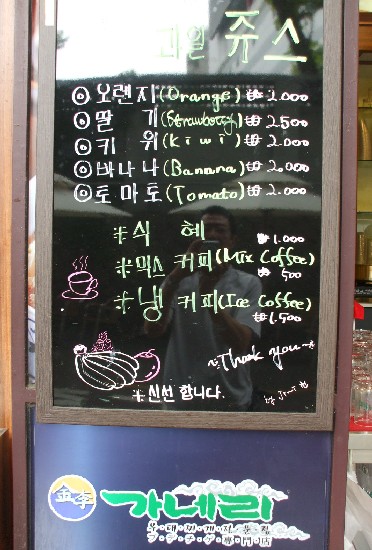 과일 쥬스
◎오렌지(Orange) ₩3.000
◎딸 기(Strawberry) ₩2.500
◎키 위(Kiwi) ₩2.000
◎바나나(Banana) ₩2.000
◎토마토(Tomato) ₩2.000
※식 혜 ₩1.000
※믹스 커피(Mix Coffee) ₩500
※냉 커피(Ice Coffee) ₩1.500
~Thank you~
※신선 합니다.
金李 가네리
부·대·찌·개·전·문·점
プ·デ·チ·ゲ·専·門·店